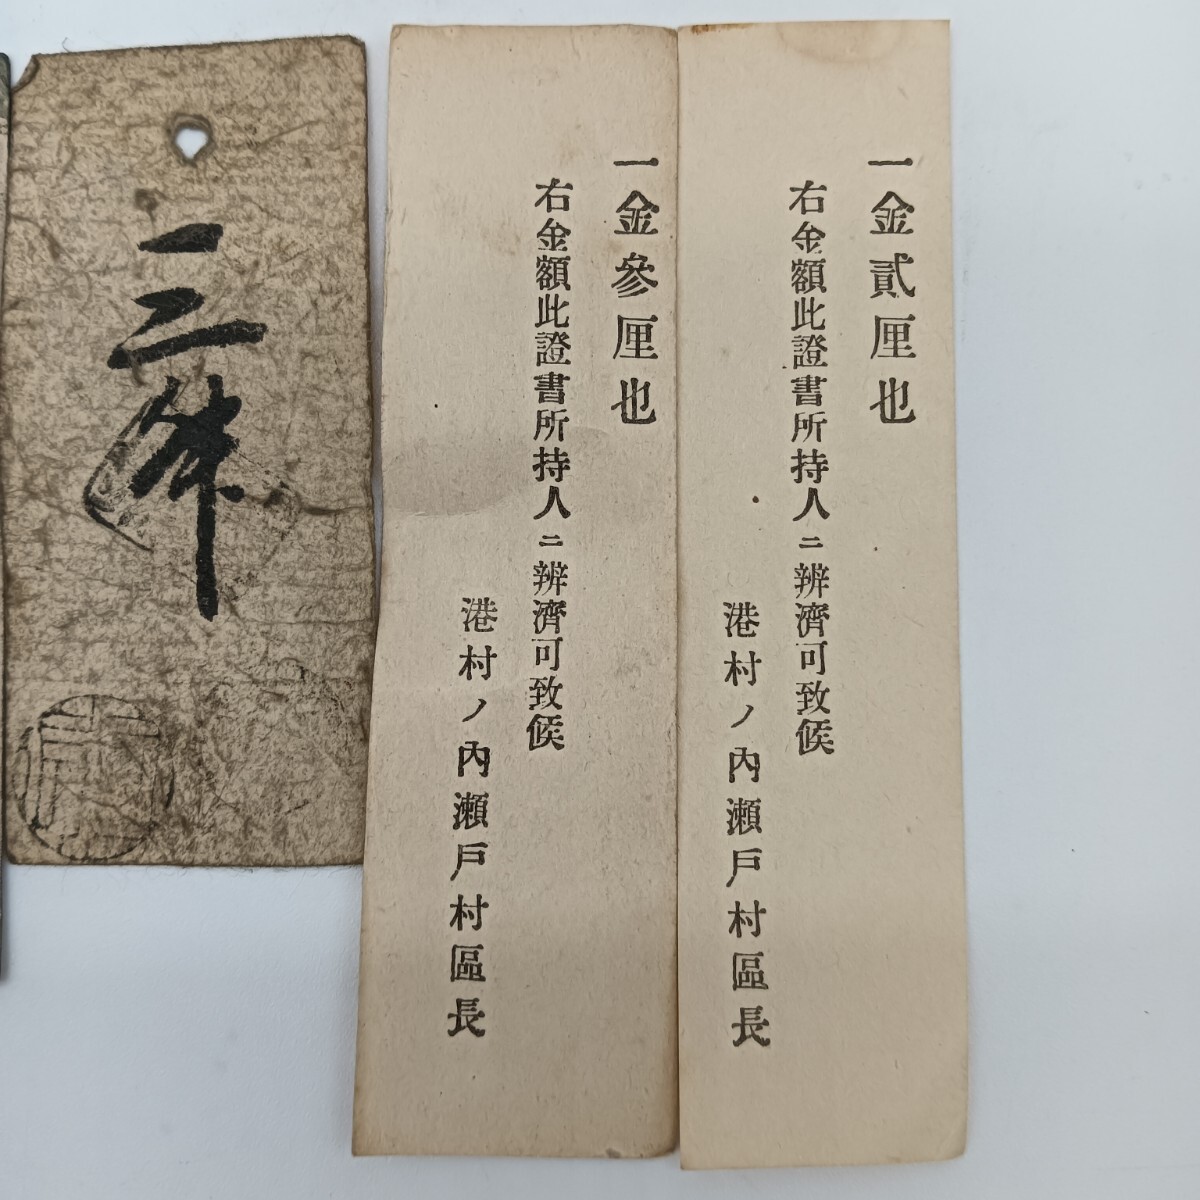 一金貳厘也
右金額此證書所持人ニ辨濟可致候
港村ノ內瀬戸村區長
一金參厘也
右金額此證書所持人ニ辨濟可致候
港村ノ內瀬戸村區長